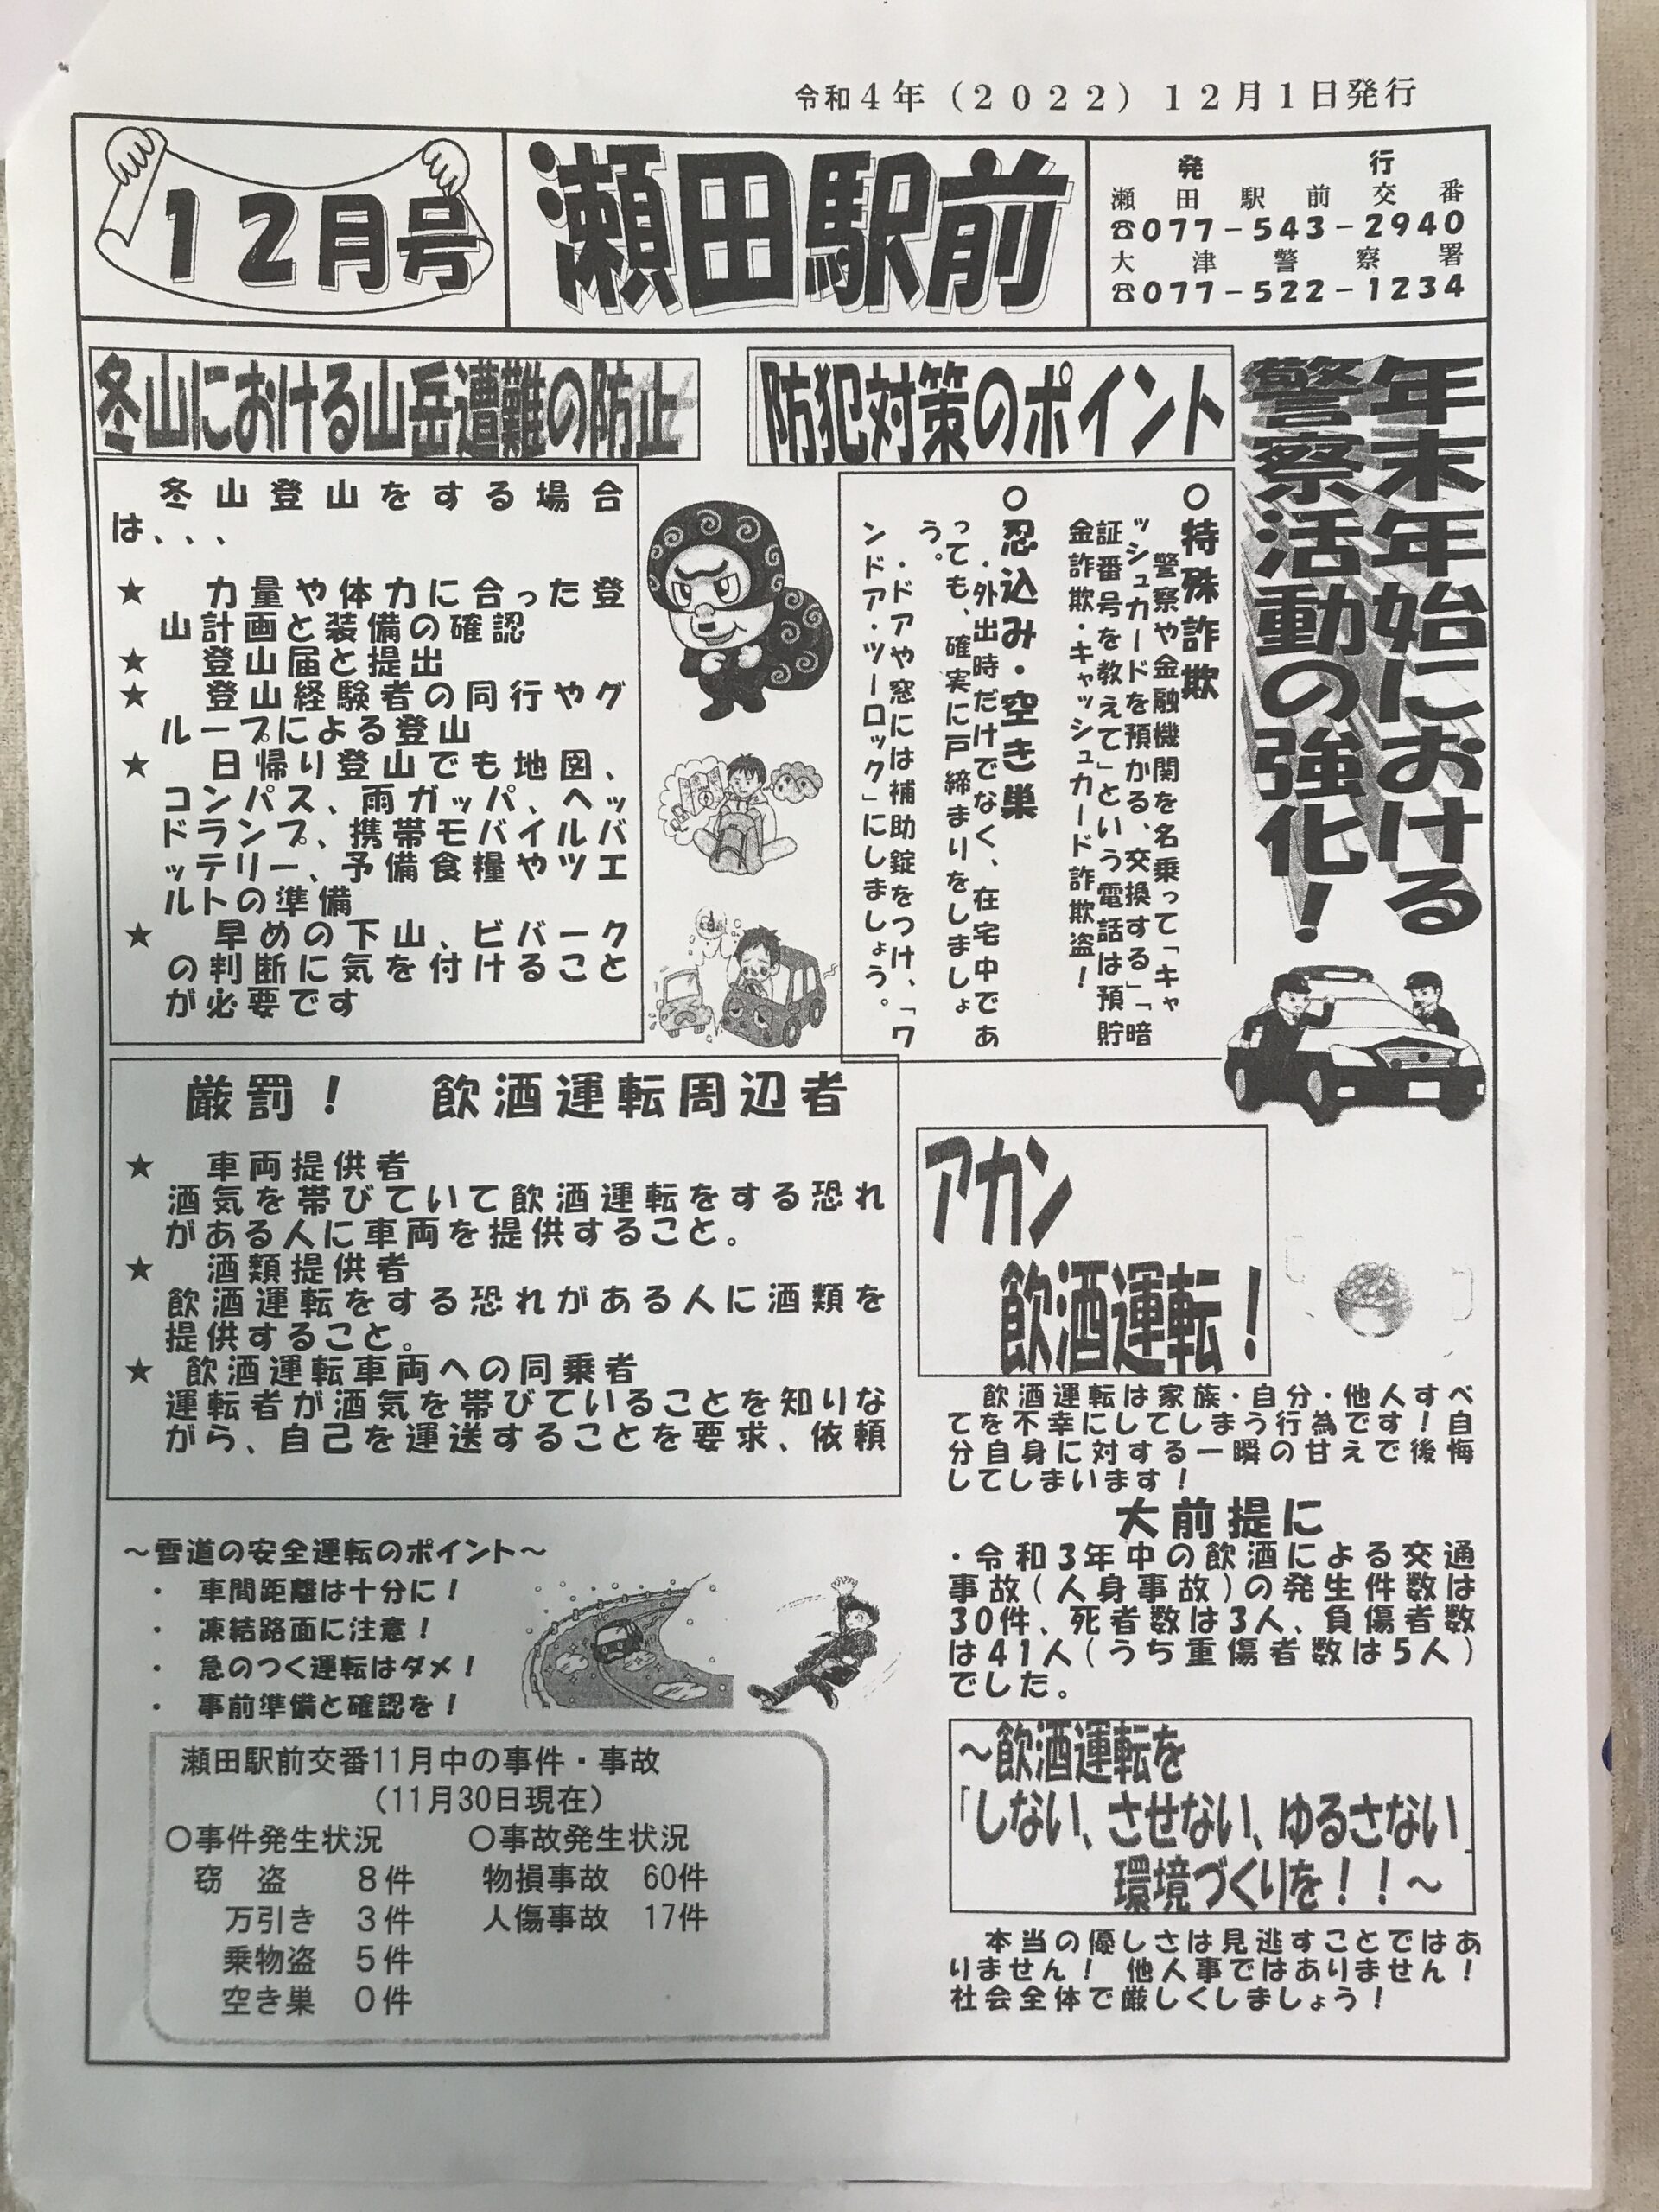 令和4年（2022）12月1日発行
12月号
瀬田駅前
発行
瀬田駅前交番
☎077-543-2940
大津警察署
☎077-522-1234
年末年始における
警察活動の強化！
防犯対策のポイント
○特殊詐欺
警察や金融機関を名乗って「キャ
ッシュカードを預かる、交換する」「暗
証番号を教えて」という電話は預貯
金詐欺・キャッシュカード詐欺盗！
○忍込み・空き巣
・外出時だけでなく、在宅中であ
っても、確実に戸締まりをしましょ
う。
・ドアや窓には補助錠をつけ、「ワ
ンドア・ツーロック」にしましょう。
冬山における山岳遭難の防止
冬山登山をする場合
は、、、
★　力量や体力に合った登
山計画と装備の確認
★　登山届と提出
★　登山経験者の同行やグ
ループによる登山
★　日帰り登山でも地図、
コンパス、雨ガッパ、ヘッ
ドランプ、携帯モバイルバ
ッテリー、予備食糧やツエ
ルトの準備
★　早めの下山、ビバーク
の判断に気を付けること
が必要です
厳罰！　飲酒運転周辺者
★　車両提供者
酒気を帯びていて飲酒運転をする恐れ
がある人に車両を提供すること。
★　酒類提供者
飲酒運転をする恐れがある人に酒類を
提供すること。
★　飲酒運転車両への同乗者
運転者が酒気を帯びていることを知りな
がら、自己を運送することを要求、依頼
アカン
飲酒運転！
飲酒運転は家族・自分・他人すべ
てを不幸にしてしまう行為です！自
分自身に対する一瞬の甘えで後悔
してしまいます！
大前提に
・令和3年中の飲酒による交通
事故（人身事故）の発生件数は
30件、死者数は3人、負傷者数
は41人（うち重傷者数は5人）
でした。
～飲酒運転を
「しない、させない、ゆるさない」
環境づくりを！！～
本当の優しさは見逃すことではあ
りません！他人事ではありません！
社会全体で厳しくしましょう！
～雪道の安全運転のポイント～
・　車間距離は十分に！
・　凍結路面に注意！
・　急のつく運転はダメ！
・　事前準備と確認を！
瀬田駅前交番11月中の事件・事故
（11月30日現在）
○事件発生状況　○事故発生状況
窃　盗　8件　物損事故　60件
万引き　3件　人傷事故　17件
乗物盗　5件
空き巣　0件